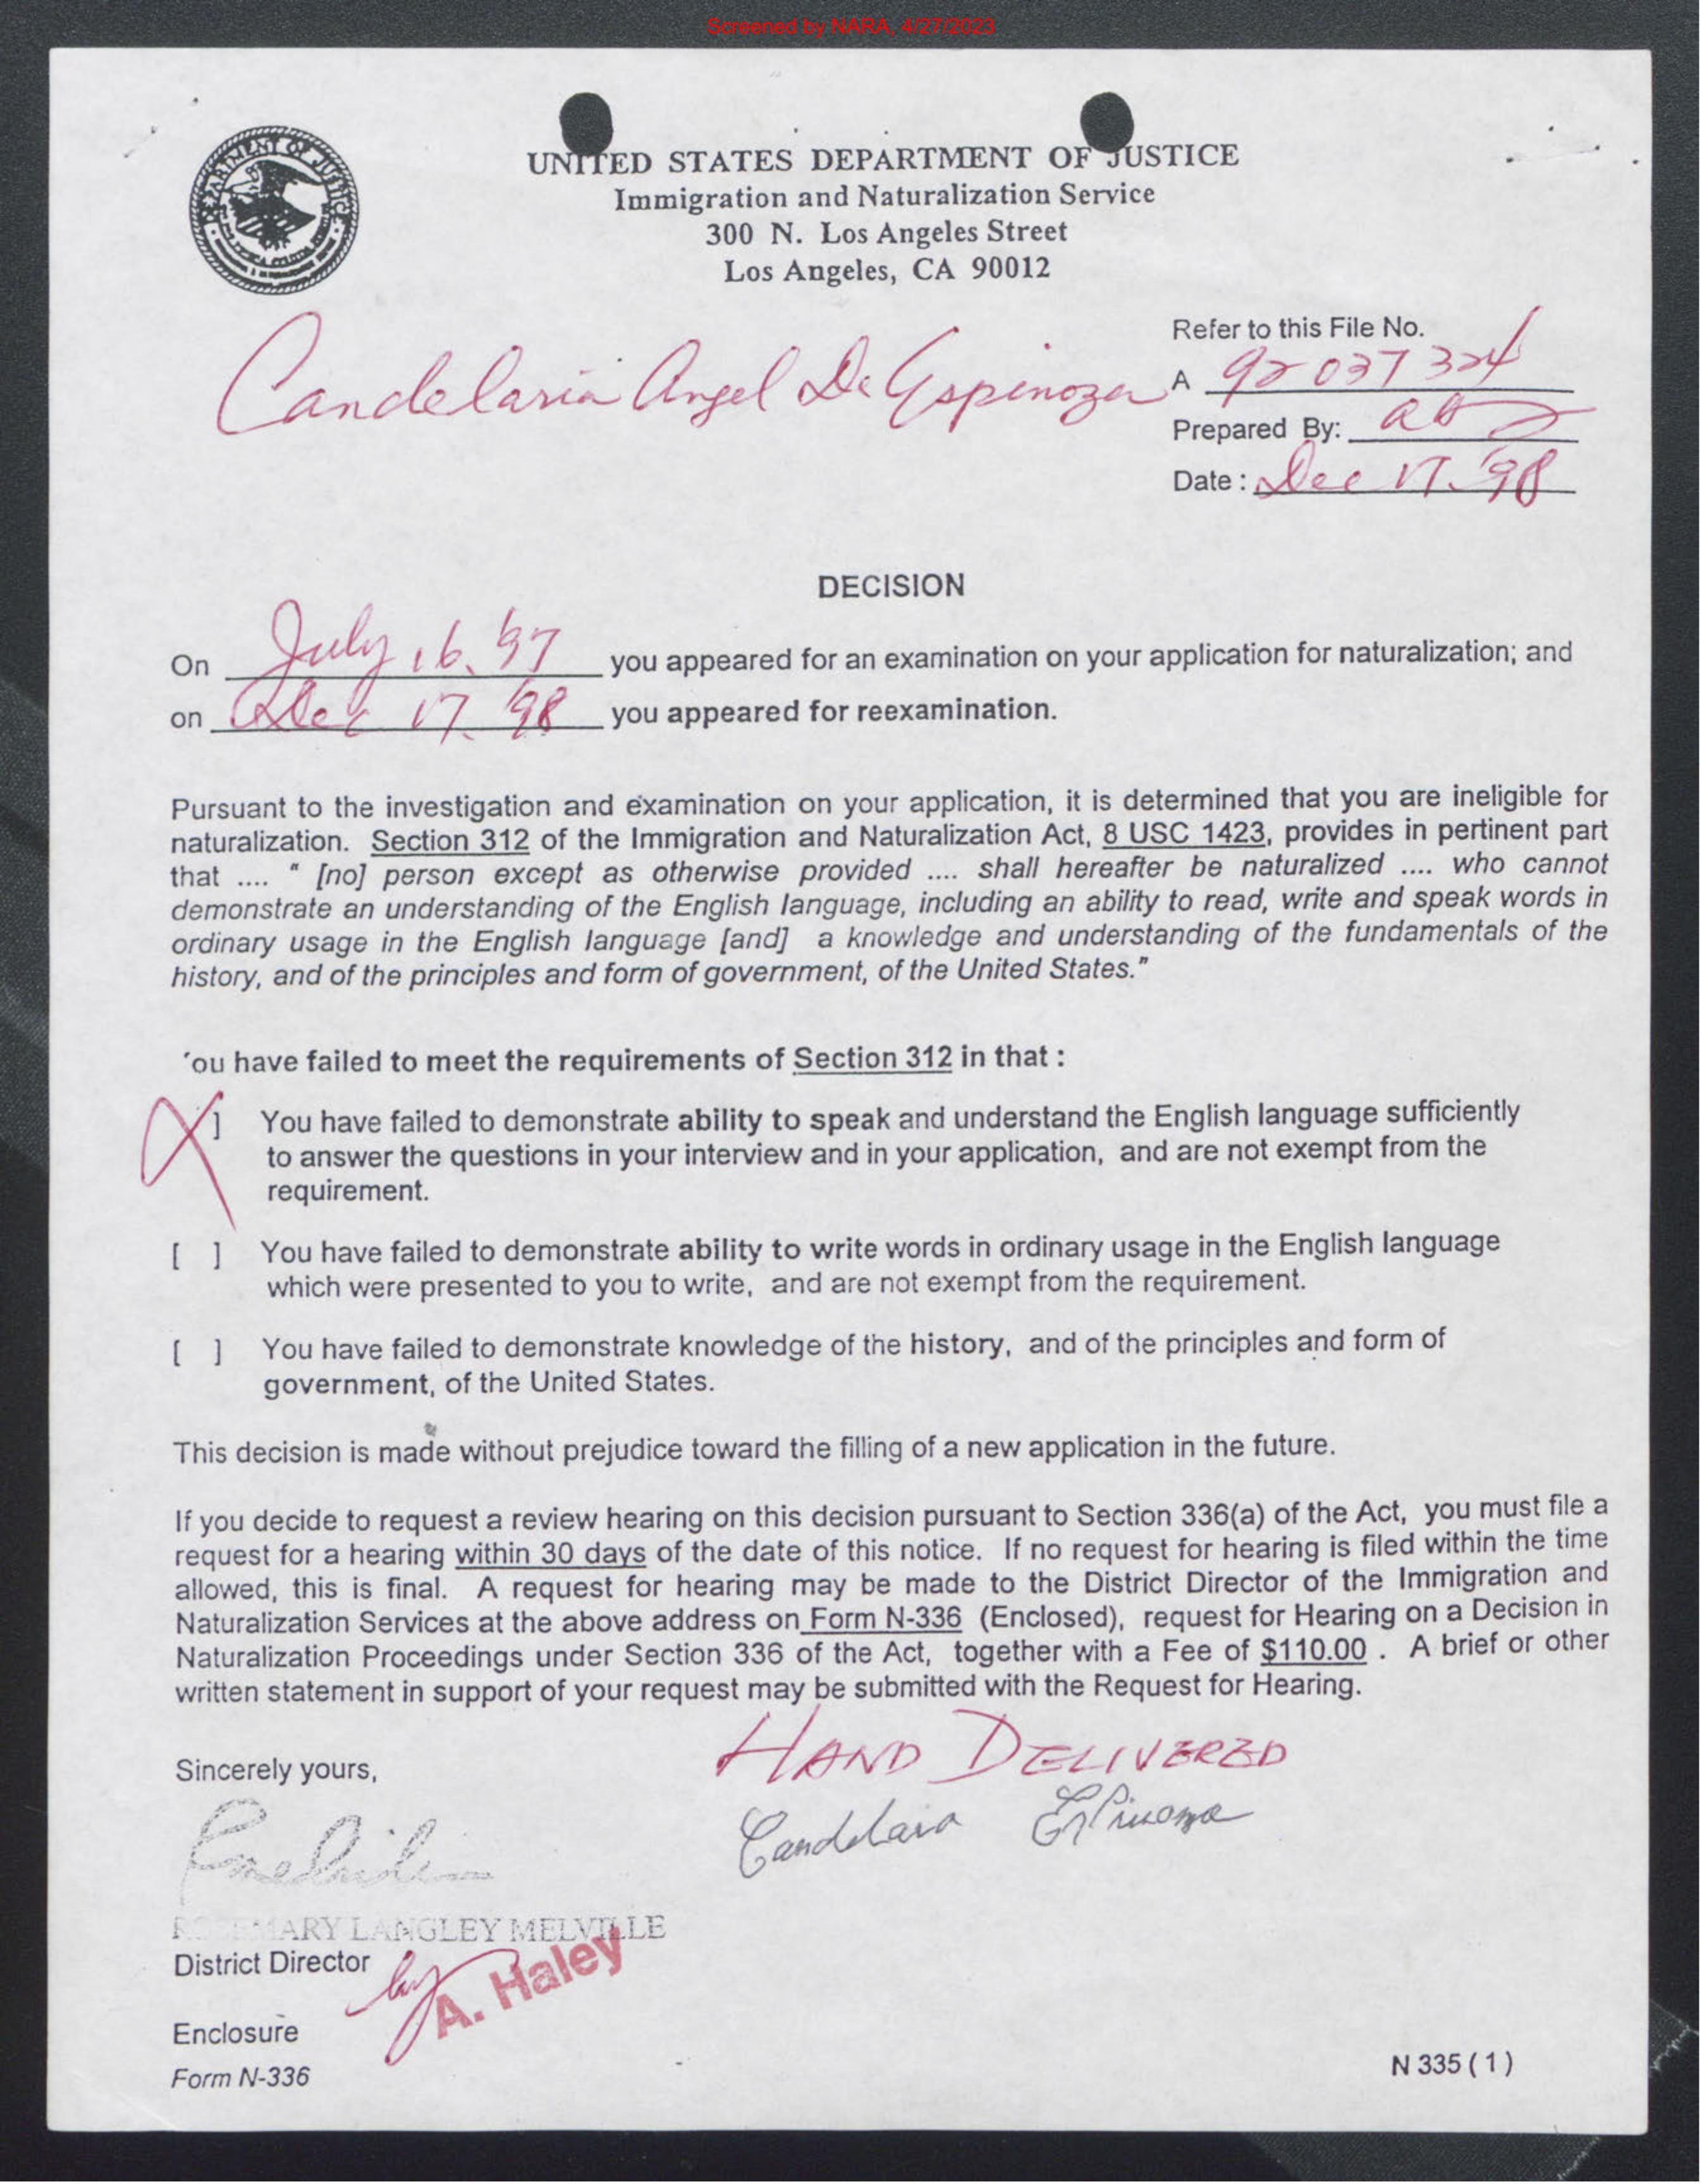 Screened by NARA, 4/27/2023
DEPARTMENT OF JUSTICE
UNITED STATES DEPARTMENT OF JUSTICE
Immigration and Naturalization Service
300 N. Los Angeles Street
Los Angeles, CA 90012
Refer to this File No.
Candelaria Angel De Espinoza
A 92 037 324
Prepared By:
Date : Dec 17. '98
DECISION
On July 16. '97 you appeared for an examination on your application for naturalization; and
on Dec 17. '98 you appeared for reexamination.
Pursuant to the investigation and examination on your application, it is determined that you are ineligible for
naturalization. Section 312 of the Immigration and Naturalization Act, 8 USC 1423, provides in pertinent part
that .... " [no] person except as otherwise provided .... shall hereafter be naturalized .... who cannot
demonstrate an understanding of the English language, including an ability to read, write and speak words in
ordinary usage in the English language [and] a knowledge and understanding of the fundamentals of the
history, and of the principles and form of government, of the United States."
'ou have failed to meet the requirements of Section 312 in that :
X ] You have failed to demonstrate ability to speak and understand the English language sufficiently
to answer the questions in your interview and in your application, and are not exempt from the
requirement.
[ ] You have failed to demonstrate ability to write words in ordinary usage in the English language
which were presented to you to write, and are not exempt from the requirement.
[ ] You have failed to demonstrate knowledge of the history, and of the principles and form of
government, of the United States.
This decision is made without prejudice toward the filling of a new application in the future.
If you decide to request a review hearing on this decision pursuant to Section 336(a) of the Act, you must file a
request for a hearing within 30 days of the date of this notice. If no request for hearing is filed within the time
allowed, this is final. A request for hearing may be made to the District Director of the Immigration and
Naturalization Services at the above address on Form N-336 (Enclosed), request for Hearing on a Decision in
Naturalization Proceedings under Section 336 of the Act, together with a Fee of $110.00 . A brief or other
written statement in support of your request may be submitted with the Request for Hearing.
HAND DELIVERED
Sincerely yours,
Candelaria Espinoza
ROSEMARY LANGLEY MELVILLE
District Director
by A. Haley
Enclosure
Form N-336
N 335 ( 1 )